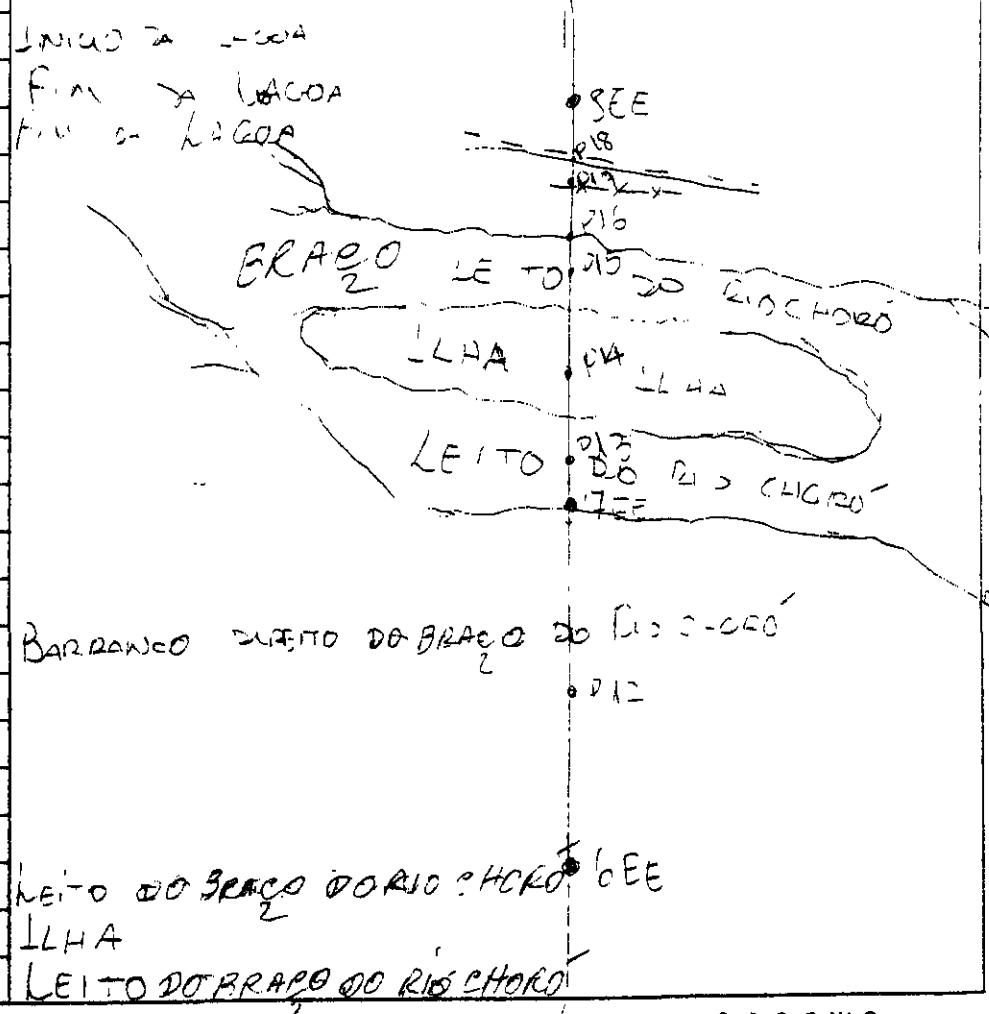 INICIO DA LAGOA
FIM DA LAGOA
FIM DA LAGOA
P18
P17
P16
BRAÇO LEITO P15 DO RIO CHORÓ
ILHA P14 ILHA
P13
LEITO DO RIO CHORÓ
7EE
BARRANCO DIREITO DO BRAÇO DO RIO CHORÓ
6EE
LEITO DO BRAÇO DO RIO CHORÓ
ILHA
LEITO DO BRAÇO DO RIO CHORÓ